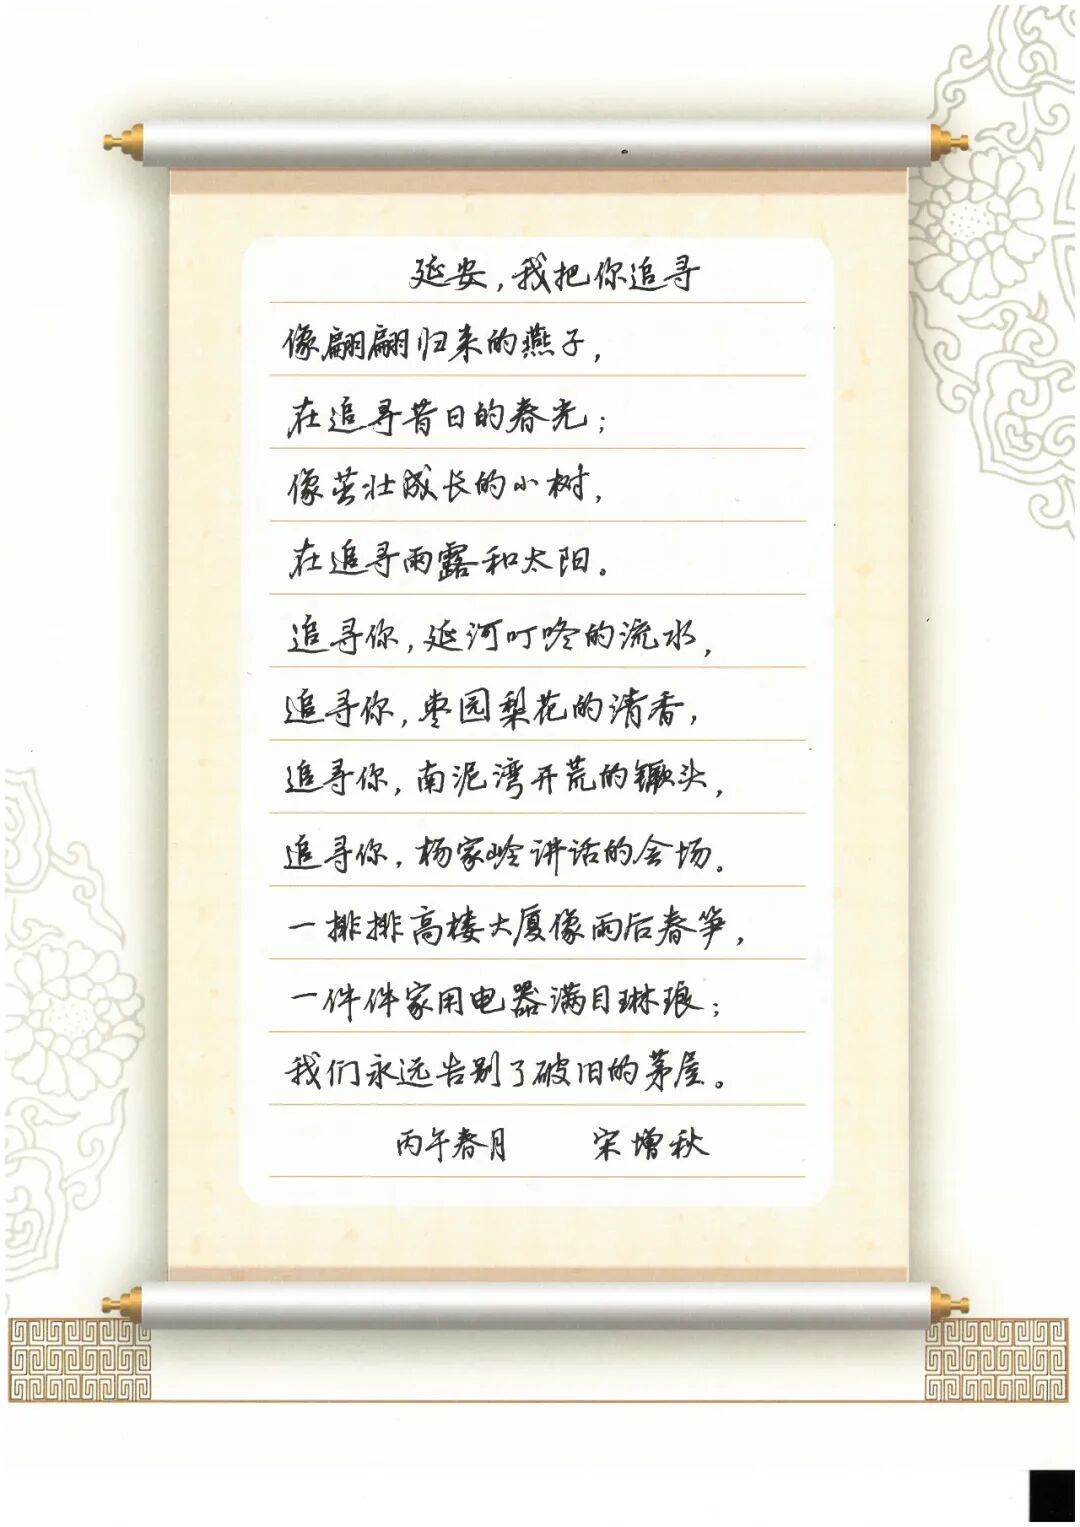 延安，我把你追寻
像翩翩归来的燕子，
在追寻昔日的春光；
像茁壮成长的小树，
在追寻雨露和太阳。
追寻你，延河叮咚的流水，
追寻你，枣园梨花的清香，
追寻你，南泥湾开荒的镢头，
追寻你，杨家岭讲话的会场。
一排排高楼大厦像雨后春笋，
一件件家用电器满目琳琅；
我们永远告别了破旧的茅屋。
丙午春月 宋增秋